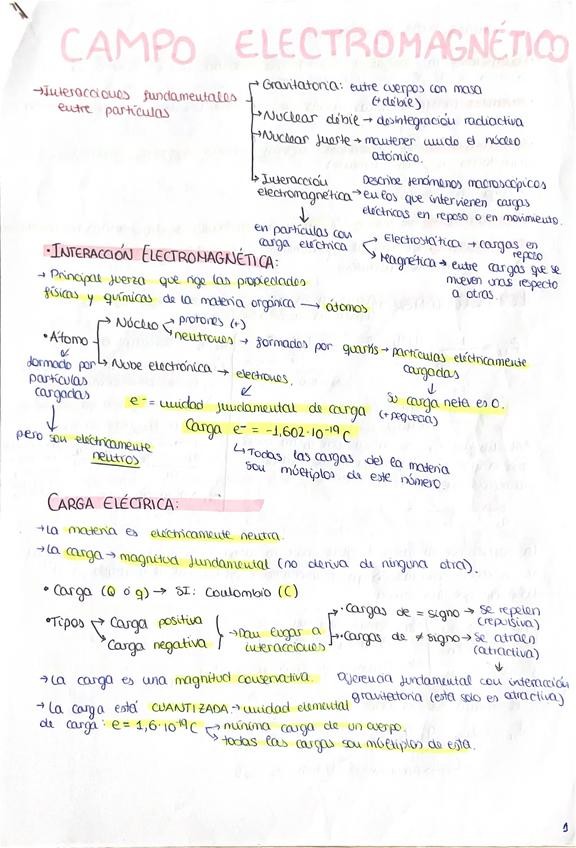 CAMPO ELECTROMAGNÉTICO
→Interacciones fundamentales entre partículas
Gravitatoria: entre cuerpos con masa
(+débil)
Nuclear débil → desintegración radiactiva
Nuclear fuerte → mantener unido el núcleo
atómico.
Interacción electromagnética →
Describe fenómenos macroscópicos
en los que intervienen cargas
eléctricas en reposo o en movimiento.
↓
en partículas con
carga eléctrica
Electrostática → cargas en
reposo
Magnética → entre cargas que se
mueven unas respecto
a otras
• INTERACCIÓN ELECTROMAGNÉTICA:
→ Principal fuerza que rige las propiedades
físicas y químicas de la materia orgánica → átomos
• Átomo
Núcleo
protones (+)
neutrones → formados por quarks → partículas eléctricamente
cargadas
↓
Su carga neta es 0.
Nube electrónica → electrones.
formado por
partículas
cargadas
↓
pero son eléctricamente
neutros
e⁻ = unidad fundamental de carga
(+ pequeña)
Carga e⁻ = -1,602·10⁻¹⁹ C
↳ Todas las cargas de la materia
son múltiplos de este número.
CARGA ELÉCTRICA:
→ La materia es eléctricamente neutra.
→ La carga → magnitud fundamental (no deriva de ninguna otra).
• Carga (Q o q) → SI: Coulombio (C)
• Tipos
Carga positiva
Carga negativa
→ Dan lugar a
interacciones
• Cargas de = signo → se repelen
(repulsiva)
• Cargas de ≠ signo → se atraen
(atractiva)
↓
diferencia fundamental con interacción
gravitatoria (esta solo es atractiva)
→ La carga es una magnitud conservativa.
→ La carga está CUANTIZADA → unidad elemental
de carga: e = 1,6·10⁻¹⁹ C
mínima carga de un cuerpo.
todas las cargas son múltiplos de esta.
1